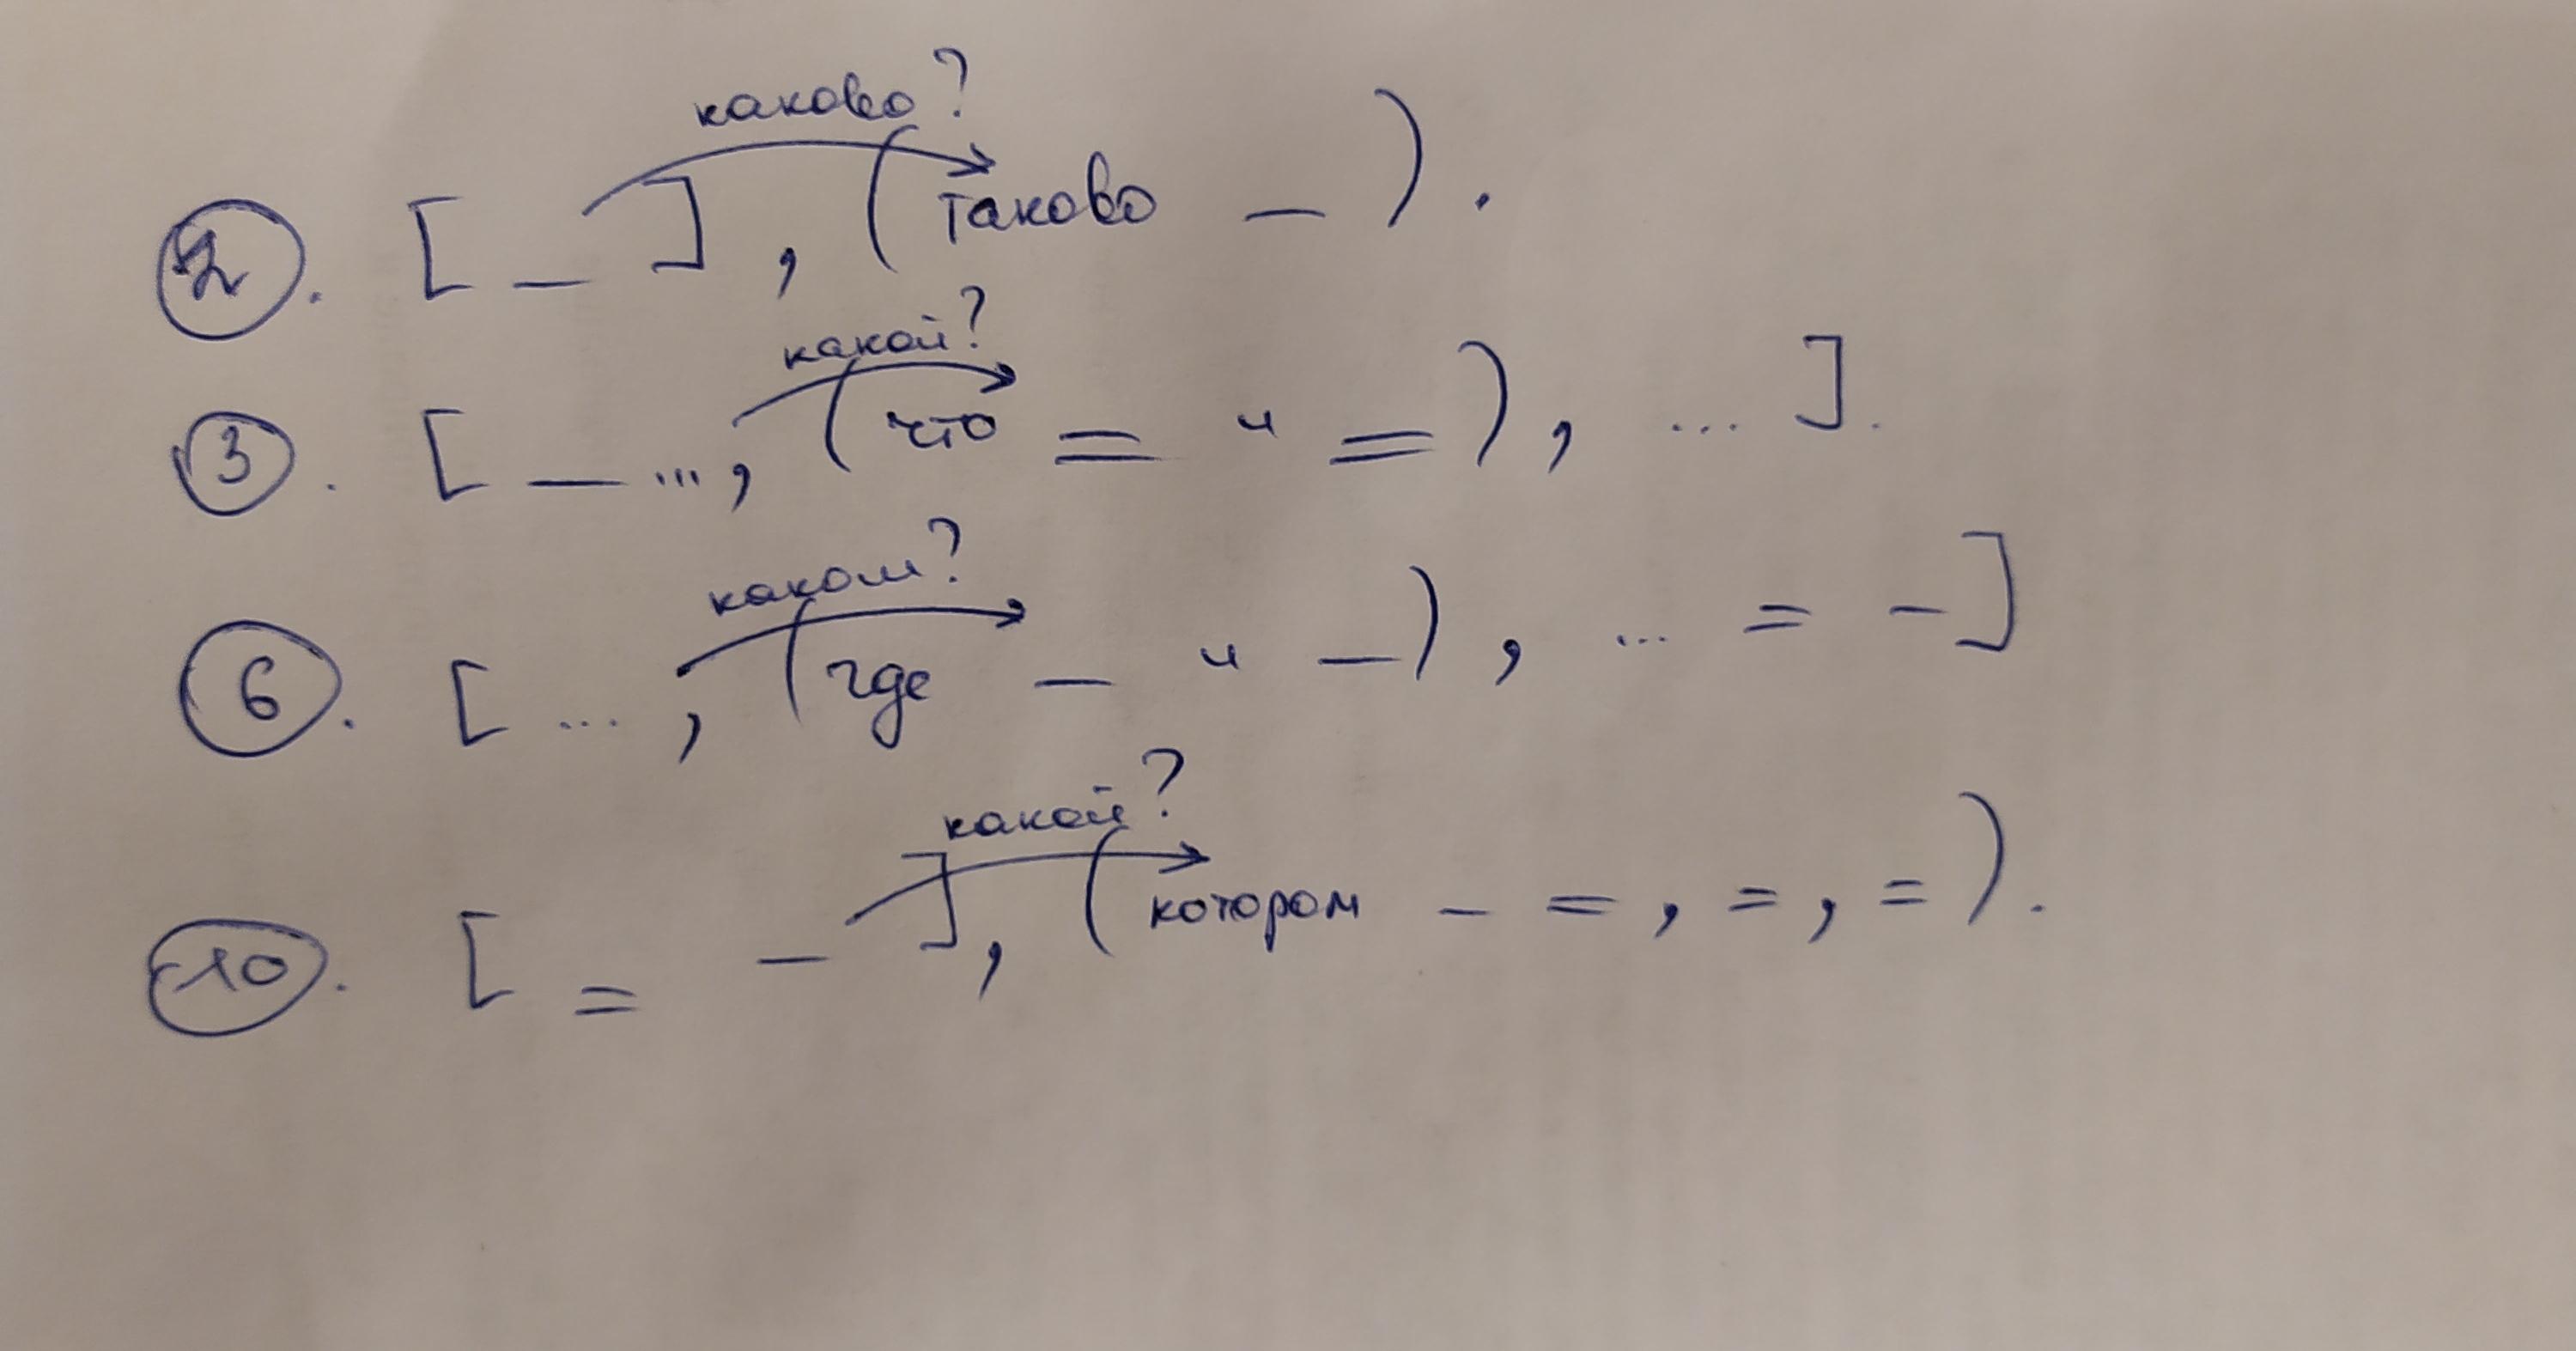 каково?
2. [ _ ] , ( таково _ ) .
какой?
3. [ _ ..., ( что = и = ) , ... ].
каком?
6. [ ... , ( где _ и _ ) , ... = - ]
какой?
10. [ = _ ] , ( котором _ = , = , = ) .